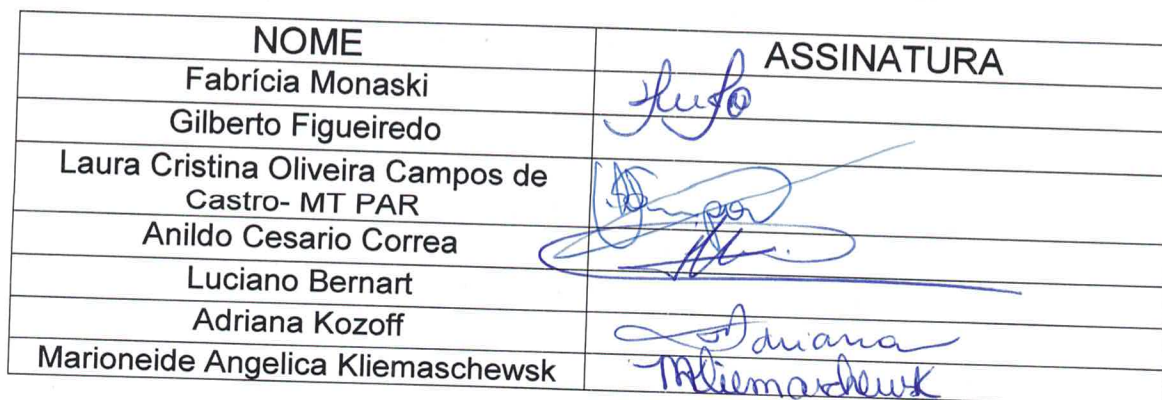 NOME ASSINATURA
Fabrícia Monaski
Gilberto Figueiredo
Laura Cristina Oliveira Campos de
Castro- MT PAR
Anildo Cesario Correa
Luciano Bernart
Adriana Kozoff Adriana
Marioneide Angelica Kliemaschewsk MKliemaschewsk